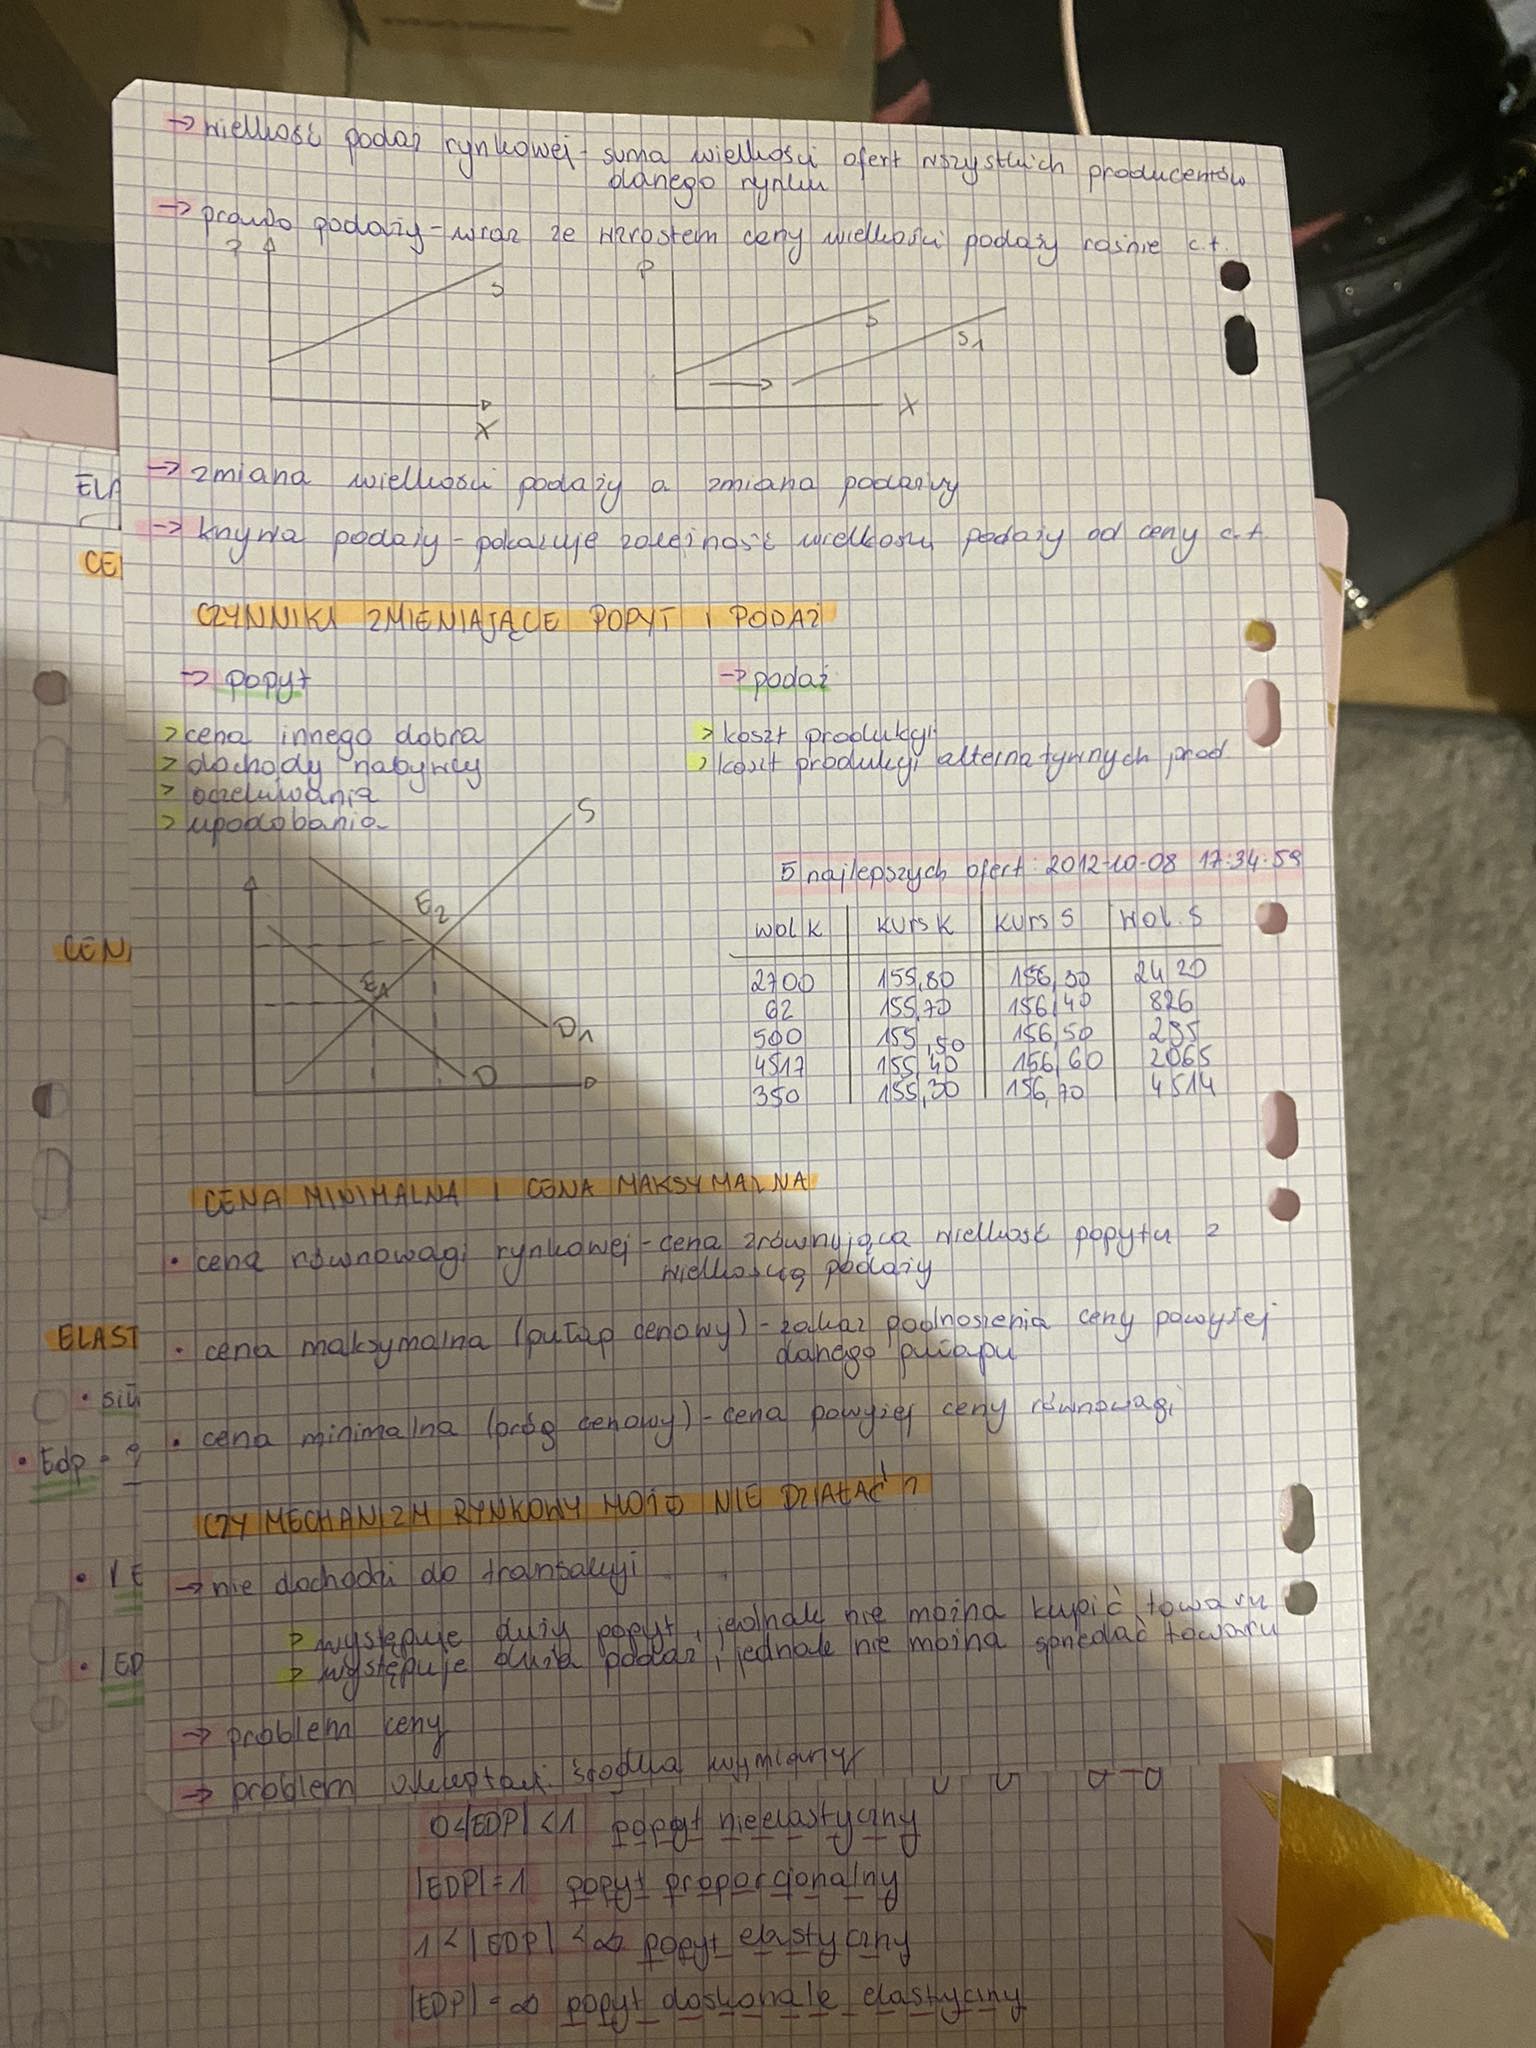 → wielkość podaż rynkowej - suma wielkości ofert wszystkich producentów
danego rynku
→ prawo podaży - wraz ze wzrostem ceny wielkości podaży rośnie c.t.
P
S
X
P
S
S1
X
→ zmiana wielkości podaży a zmiana podaży
→ krzywa podaży - pokazuje zależność wielkości podaży od ceny c.t.
CZYNNIKI ZMIENIAJĄCE POPYT I PODAŻ
→ popyt
> cena innego dobra
> dochody nabywcy
> oczekiwania
> upodobania
→ podaż
> koszt produkcji
> koszt produkcji alternatywnych prod.
S
E2
E1
D1
D
5 najlepszych ofert: 2012-10-08 17:34:59
wol K kurs K kurs S wol. S
2700 155,80 156,30 2420
62 155,70 156,40 826
500 155,50 156,50 295
4517 155,40 156,60 2065
350 155,30 156,70 4514
CENA MINIMALNA I CENA MAKSYMALNA
• cena równowagi rynkowej - cena zrównująca wielkość popytu z
wielkością podaży
• cena maksymalna (pułap cenowy) - zakaz podnoszenia ceny powyżej
danego pułapu
• cena minimalna (próg cenowy) - cena powyżej ceny równowagi
CZY MECHANIZM RYNKOWY MOŻE NIE DZIAŁAĆ?
→ nie dochodzi do transakcji
> występuje duży popyt, jednak nie można kupić towaru
> występuje duża podaż, jednak nie można sprzedać towaru
→ problem ceny
→ problem akceptacji środka wymiany
ELA
CE
CEN
ELAST
• Edp =
• |E
• |ED
0<|EDP|<1 popyt nieelastyczny
|EDP|=1 popyt proporcjonalny
1<|EDP|<∞ popyt elastyczny
|EDP|=∞ popyt doskonale elastyczny